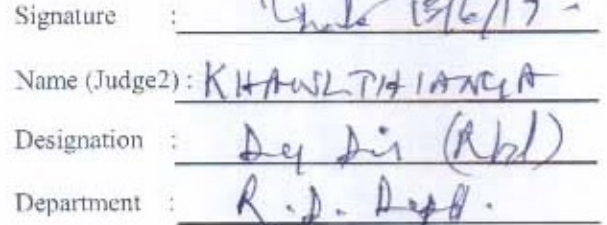 Signature : 13/6/17
Name (Judge2) : KHAWLTHIANGA
Designation : Dy Dir (Rbl)
Department : R.D. Deptt.